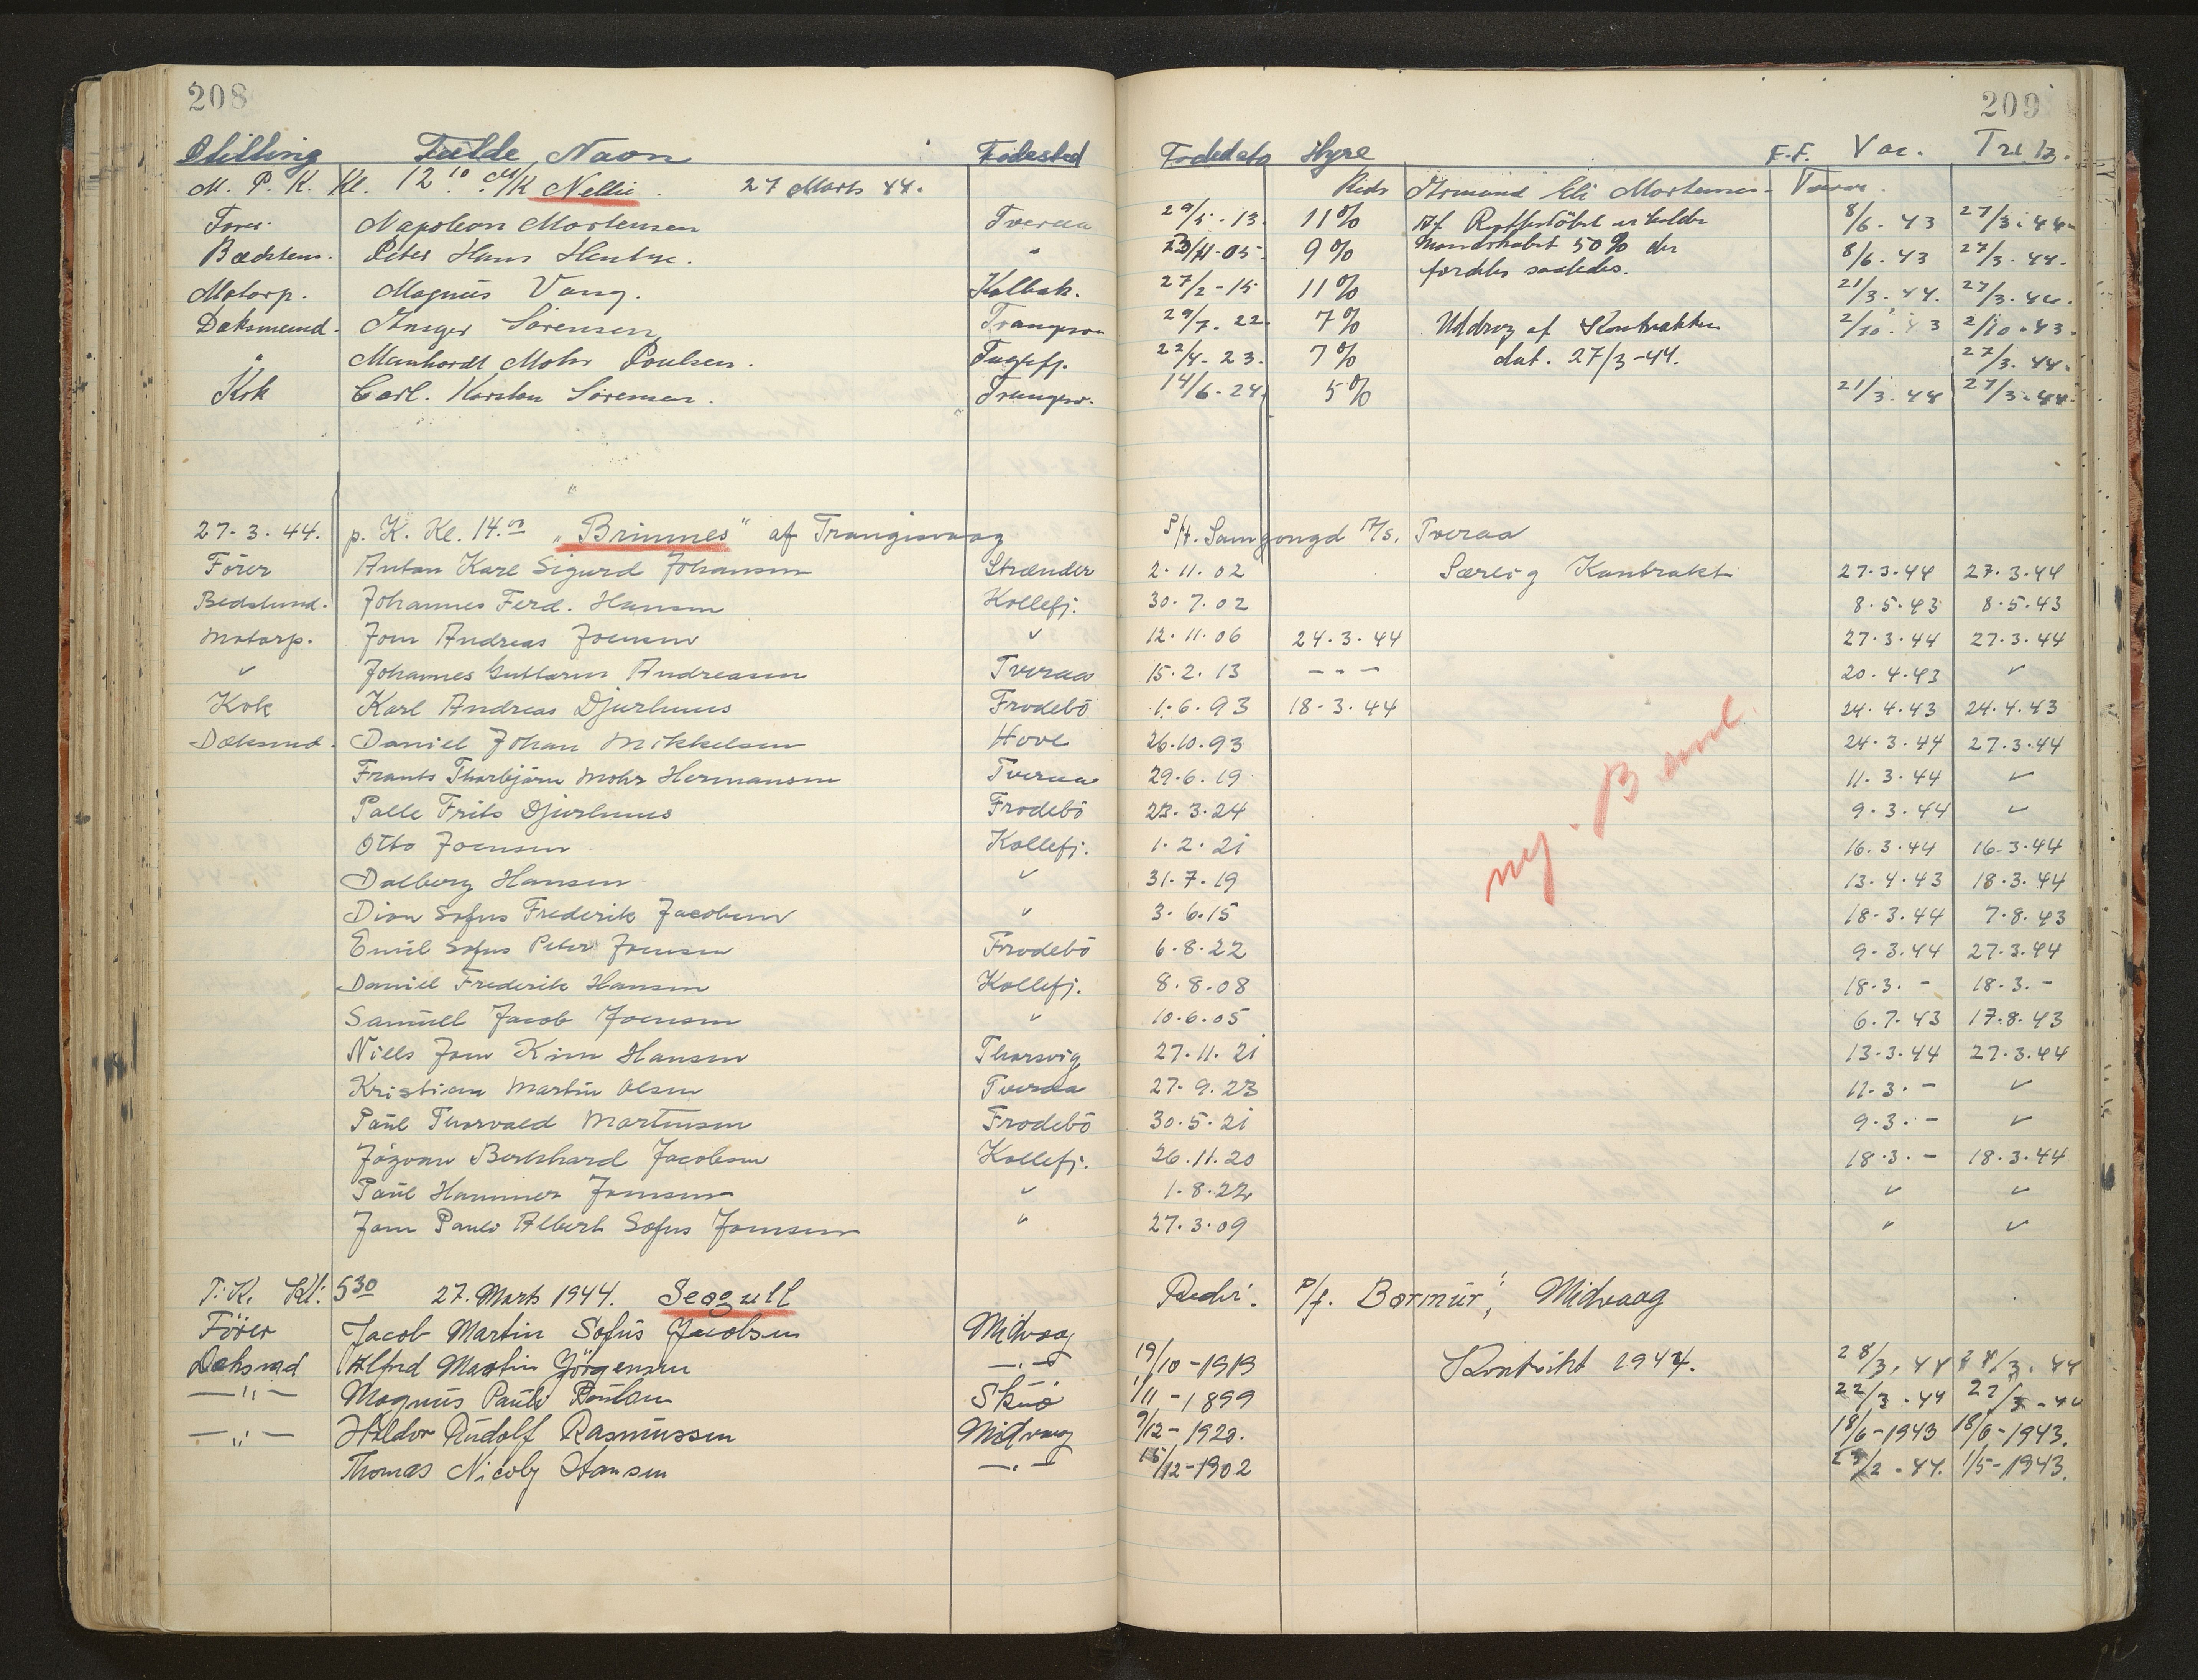 208
209
Stilling Fulde Navn Fødested Fødedato Hyre F.F. Vac. Tril B.
M. P. K. Kl. 12.10 M/K Nellie. 27 Marts 44. Reds Armund Eli Mortensen Tveraa
Fører Napoleon Mortensen Tveraa 29/5-13. 11% Af Rufferlöbet erholder 8/6-43 27/3-44
Bedstem. Peter Hans Hentze. " 23/11-05 9% Mandskabet 50% der 8/6-43 27/3-44.
fordeles saaledes.
Motorp. Magnus Vang. Kolbak. 27/2-15 11% 21/3-44. 27/3-44.
Dæksmand. Ansger Sörensen Trangisv. 29/7-22. 7% Uddrag af Kontrakten 2/10-43 2/10-43.
" Manhardt Mohr Poulsen. Fuglefj. 22/4-23. 7% dat. 27/3-44. 27/3-44.
Kok Carl. Karstan Sörensen. Trangisv. 14/6-24. 5% 21/3-44 27/3-44.
27-3-44. p. K. Kl. 14.00 "Brimnes" af Trangisvaag P/f. Samgongd A/s. Tveraa
Förer Anton Karl Sigurd Johansen Strænder 2.11.02 Særlig Kontrakt 27.3.44 27.3.44
Bedstmd. Johannes Ferd. Hansen Kollefj. 30.7.02 8.5.43 8.5.43
Motorp. Jom Andreas Joensen " 12.11.06 24.3.44 27.3.44 27.3.44
" Johannes Guttorm Andreasen Tveraa 15.2.13 - " - 20.4.43 "
Kok Karl Andreas Djurhuus Frodebö 1.6.93 18-3.44 24.4.43 24.4.43
Dæksmd. Daniel Johan Mikkelsen Hove 26.10.93 24.3.44 27.3.44
Frants Thorbjörn Mohr Hermansen Tveraa 29.6.19 11.3.44 "
Palle Frits Djurhuus Frodebö 22.3.24 9.3.44 "
Otto Joensen Kollefj. 1.2.21 16.3.44 16.3.44
Dalberg Hansen " 31.7.19 13.4.43 18.3.44
Dion Sofus Frederik Jacobsen " 3.6.15 18.3.44 7.8.43
Emil Sofus Peter Joensen Frodebö 6.8.22 9.3.44 27.3.44
Daniel Frederik Hansen Kollefj. 8.8.08 18.3.- 18.3.-
Samuel Jacob Joensen " 10.6.05 6.7.43 17.8.43
Niels Jom Kim Hansen Thorsvig 27.11.21 13.3.44 27.3.44
Kristian Martin Olsen Tveraa 27.9.23 11.3.- "
Paul Thorvald Martensen Frodebö 30.5.21 9.3.- "
Jógvan Berkhard Jacobsen Kollefj. 26.11.20 18.3.- 18.3.44
Paul Hammer Joensen " 1.8.22 " "
Jom Pauli Albert Sofus Joensen " 27.3.09 " "
ny.
T.K. Kl: 5 30 27. Marts 1944. Seagull Rederi. P/f. "Bormur", Midvaag
Förer Jacob Martin Sofus Jacobsen Midvaag
Dæksmd Alfred Martin Jörgensen -"- 19/10-1919 Kontrakt 1944. 28/3.44 28/3.44
-"- Magnus Pauli Poulsen Skuö 1/11-1899 22/3-44 22/3-44
-"- Haldor Rudolf Rasmussen Midvaag 9/12-1920. 18/6-1943 18/6-1943.
Thomas Nicolaj Hansen -"- 15/12-1902 1/5-1943.